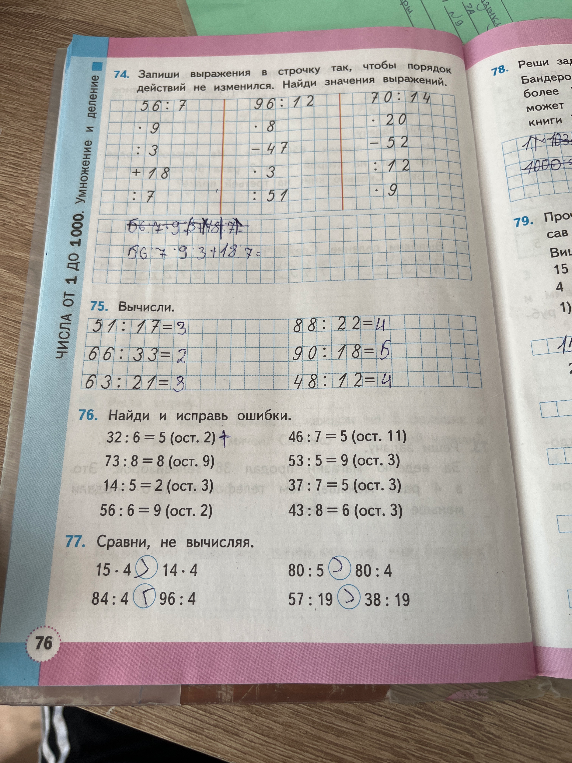 74. Запиши выражения в строчку так, чтобы порядок
действий не изменился. Найди значения выражений.
56 : 7 96 : 12 70 : 14
· 9 · 8 · 20
: 3 – 47 – 52
+ 18 · 3 : 12
: 7 : 51 · 9
56 7 9 3+18 7=
75. Вычисли.
51 : 17 = 3 88 : 22 = 4
66 : 33 = 2 90 : 18 = 5
63 : 21 = 3 48 : 12 = 4
76. Найди и исправь ошибки.
32 : 6 = 5 (ост. 2) + 46 : 7 = 5 (ост. 11)
73 : 8 = 8 (ост. 9) 53 : 5 = 9 (ост. 3)
14 : 5 = 2 (ост. 3) 37 : 7 = 5 (ост. 3)
56 : 6 = 9 (ост. 2) 43 : 8 = 6 (ост. 3)
77. Сравни, не вычисляя.
15 · 4 > 14 · 4 80 : 5 > 80 : 4
84 : 4 < 96 : 4 57 : 19 > 38 : 19
76
ЧИСЛА ОТ 1 ДО 1000. Умножение и деление
78. Реши
Бандеро
более
может
книги
79.
сав
15
4
1)